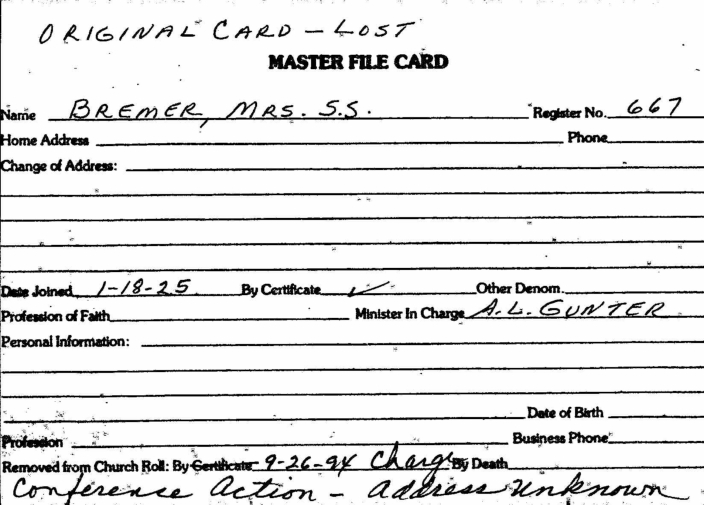 ORIGINAL CARD - LOST
MASTER FILE CARD
Name BREMER, MRS. S.S. Register No. 667
Home Address Phone
Change of Address:
Date Joined 1-18-25 By Certificate ✓ Other Denom.
Profession of Faith Minister In Charge A.L. GUNTER
Personal Information:
Date of Birth
Profession Business Phone
Removed from Church Roll: By Certificate 9-26-94 Charge By Death
Conference Action - address unknown